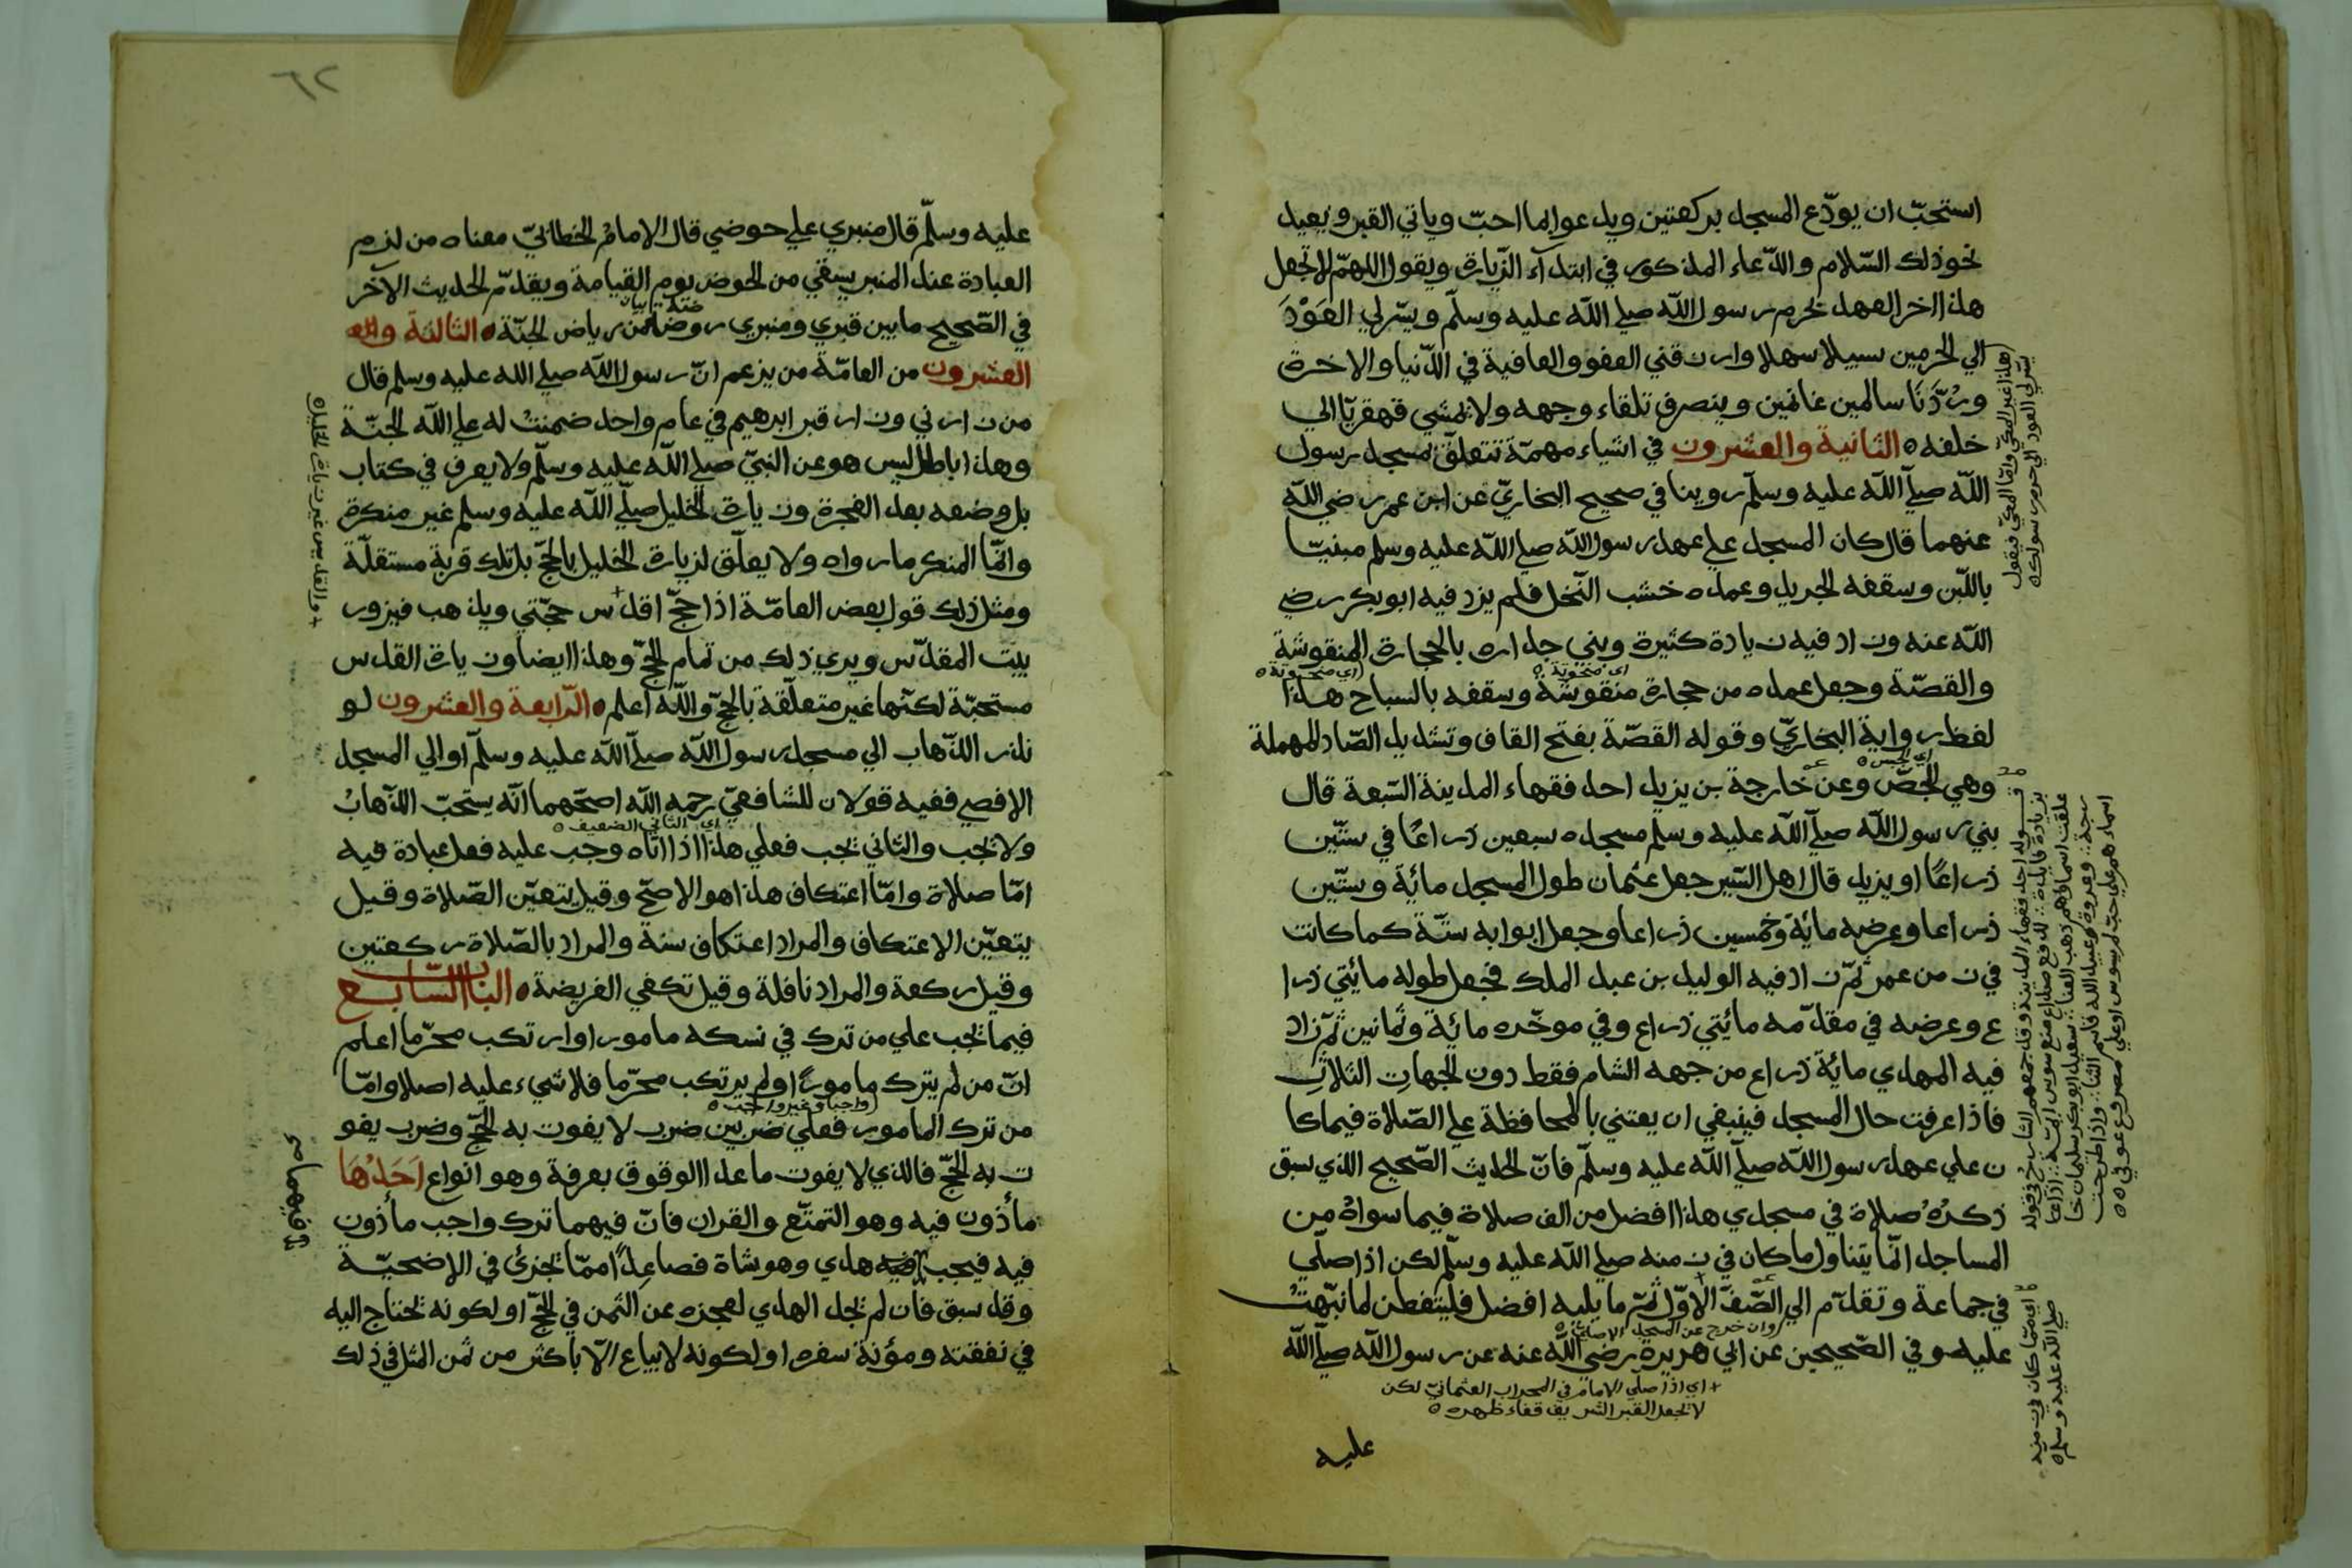 استحبّ ان يودّع المسجد بركعتين ويدعو بما احبّ وياتي القبر ويعيد
نحو ذلك السّلام والدّعاء المذكور في ابتداء الزّيارة ويقول اللهمّ لا تجعل
هذا اخر العهد بحرم رسول الله صلي الله عليه وسلّم ويسّر لي العَوْدَ
الي الحرمين سبيلا سهلا وارزقني العفو والعافية في الدّنيا والاخرة
ورُدَّنَا سالمين غانمين وينصرف تلقاء وجهه ولا يمشي قهقريّا الي
خلفه ٥ الثانية والعشرون في اشياء مهمّة تتعلّق بمسجد رسول
الله صلّي الله عليه وسلّم روينا في صحيح البخاريّ عن ابن عمر رضي الله
عنهما قال كان المسجد علي عهد رسول الله صلي الله عليه وسلم مبنيّا
باللّبن وسقفه الجريد وعمده خشب النّخل فلم يزد فيه ابوبكر رضي
الله عنه وزاد فيه زيادة كثيرة وبني جداره بالحجارة المنقوشة
(اي منحوتة ٥
والقصّة وجعل عمده من حجارة منقوشة وسقفه بالساج هذا
اي منحوتة ٥
لفظ رواية البخاريّ وقوله القصّة بفتح القاف وتشديد الصّاد المهملة
وهي الجصّ وعن خارجة بن يزيد احد فقهاء المدينة السّبعة قال
اي الجبس ٥
بني رسول الله صلّي الله عليه وسلم مسجده سبعين ذراعًا في ستّين
ذراعًا او يزيد قال اهل السّير جعل عثمان طول المسجد مائة وستّين
ذراعا وعرضه مائة وخمسين ذراعا وجعل ابوابه ستّة كما كانت
في زمن عمر ثمّ زاد فيه الوليد بن عبد الملك فجعل طوله مائتي ذرا
ع وعرضه في مقدّمه مائتي ذراع وفي موخّره مائة وثمانين ثمّ زاد
فيه المهدي مائة ذراع من جهه الشام فقط دون الجهات الثلاث
فاذا عرفت حال المسجد فينبغي ان يعتني بالمحافظة علي الصّلاة فيما كا
ن علي عهد رسول الله صلّي الله عليه وسلّم فانّ الحديث الصّحيح الذي سبق
ذكرُهُ صلاة في مسجدي هذا افضل من الف صلاة فيما سواهُ من
المساجد انّما يتناول ما كان في زمنه صلي الله عليه وسلّم لكن اذا صلّي
في جماعة وتقدّم الي الصّفّ الاوّل ثمّ ما يليه افضل فليتفطن لما نبّهتُ
(وان خرج عن المسجد الاصلي ٥
عليه وفي الصّحيحين عن ابي هريرة رضي الله عنه عن رسول الله صلّي الله
+ اي اذا صلّي الامام في المحراب العثمانيّ لكن
لا تجعل القبر الشريف قفاء ظهره ٥
عليه
(هذا غير المكّي وامّا المكّيّ فيقول
يسّر لي العود الي حرم رسولك ٥
اي ممّا كان في زمنه
صلي الله عليه وسلم ٥
٦٢
عليه وسلّم قال منبري علي حوضي قال الامامُ الخطابيّ معناه من لزم
العبادة عند المنبر يسقي من الحوض يوم القيامة ويقدّم الحديث الآخر
في الصّحيح ما بين قبري ومنبري روضة من رياض الجنّة ٥ الثالثة والعـ
العشرون من العامّة من يزعم انّ رسول الله صلي الله عليه وسلم قال
من زارني وزار قبر ابرهيم في عام واحد ضمنتُ له علي الله الجنّة
وهذا باطل ليس هو عن النبيّ صلي الله عليه وسلّم ولا يعرف في كتاب
بل وضعه بعد الفجرة وزيارة الخليل صلّي الله عليه وسلم غير منكرة
وانّما المنكر ما رواه ولا يعلّق لزيارة الخليل بالحجّ بل تلك قربة مستقلّة
ومثل ذلك قول بعض العامّة اذا حجّ اقدّس حجّتي ويذهب فيزور
بيت المقدّس ويري ذلك من تمام الحجّ وهذا ايضا وزيارة القدس
مستحبّة لكنّها غير متعلّقة بالحجّ والله اعلم ٥ الرّابعة والعشرون لو
نذر الذّهاب الي مسجد رسول الله صلّي الله عليه وسلّم او الي المسجد
الاقصي ففيه قولان للشافعيّ رحمه الله اصحّهما انّه يستحبّ الذّهابُ
ولا تجب والثاني تجب فعلي هذا اذا اتاه وجب عليه فعل عبادة فيه
اي الثاني الضعيف ٥
امّا صلاة وامّا اعتكاف هذا هو الاصحّ وقيل يتعيّن الصّلاة وقيل
يتعيّن الاعتكاف والمراد اعتكاف سنة والمراد بالصّلاة ركعتين
وقيل ركعة والمراد نافلة وقيل تكفي الفريضة ٥ الباب السّابع
فيما تجب علي من ترك في نسكه مامورا او ارتكب محرّما اعلم
انّ من لم يترك مامورًا او لم يرتكب محرّما فلا شيء عليه اصلا وامّا
من ترك المامور فعلي ضربين ضرب لا يفوت به الحجّ وضرب يفو
(واجبا وغير واجب ٥
ت به الحجّ فالذي لا يفوت ما عدا الوقوف بعرفة وهو انواع اَحَدُهَا
مأذون فيه وهو التمتّع والقران فانّ فيهما ترك واجب مأذون
فيه فيجب فيه هدي وهو شاة فصاعدًا ممّا تجزئ في الاضحيّة
وقد سبق فان لم تجد الهدي لعجزه عن الثمن في الحجّ او لكونه تحتاج اليه
في نفقته ومؤنة سفره او لكونه لا يباع الّا باكثر من ثمن المثل في ذلك
+ والقدس غير زيارة الخليل ٥
فيهما صح